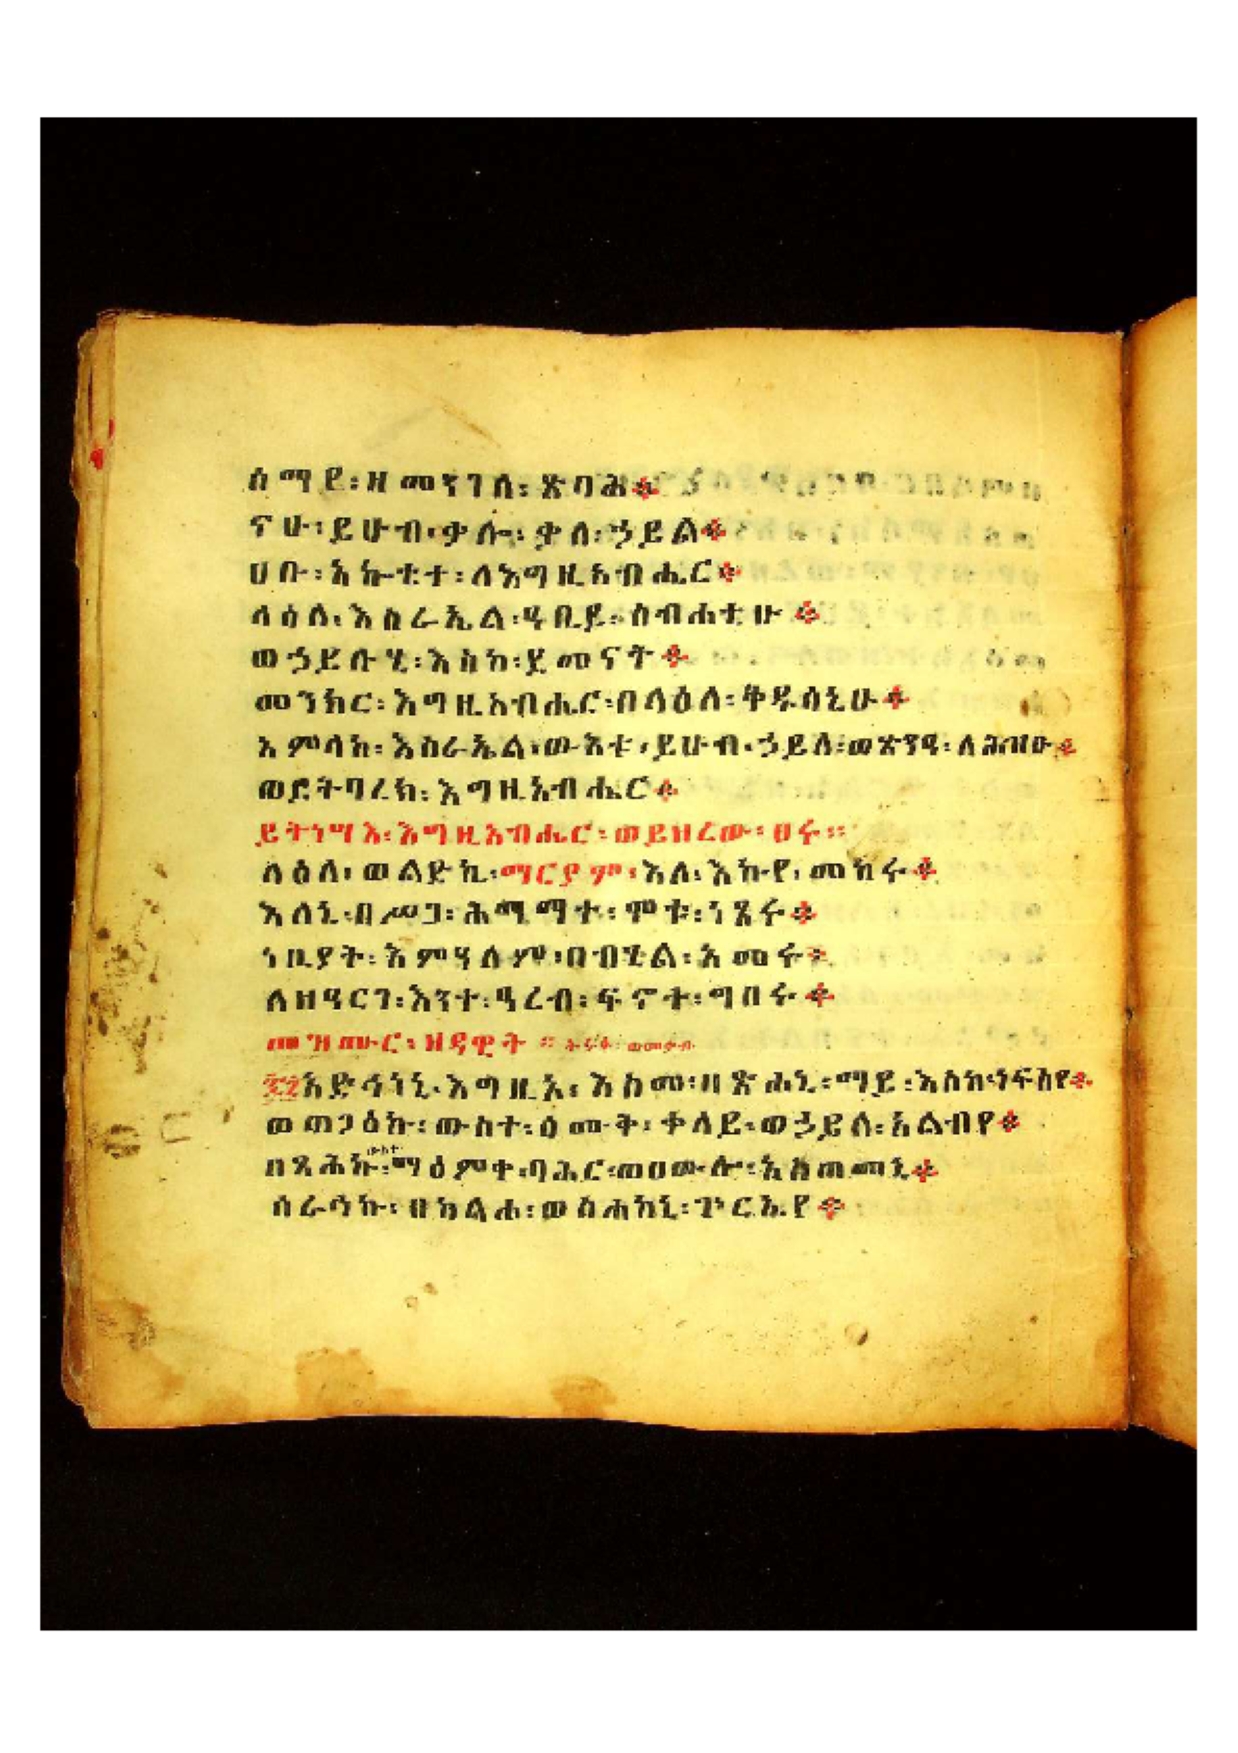 ሰማይ፡ዘመንገለ፡ጽባሕ።
ናሁ፡ይሁብ፡ቃሎ፡ቃለ፡ኃይል።
ሀቡ፡አኩቴተ፡ለእግዚአብሔር።
ላዕለ፡እስራኤል፡ዓቢይ፡ስብሐቲሁ።
ወኃይሉሂ፡እስከ፡ደመናት።
መንክር፡እግዚአብሔር፡በላዕለ፡ቅዱሳኒሁ።
አምላክ፡እስራኤል፡ውእቱ፡ይሁብ፡ኃይለ፡ወጽንዓ፡ለሕዝቡ።
ወይትባረክ፡እግዚአብሔር።
ይትነሣእ፡እግዚአብሔር፡ወይዘረው፡ፀሩ።
ላዕለ፡ወልድኪ፡ማርያም፡እለ፡እኩየ፡መከሩ።
እለኒ፡በሥጋ፡ሕማማተ፡ሞቱ፡ነጸሩ።
ነቢያት፡እምዓለም፡በብሂል፡አመሩ።
ለዘዓርገ፡እንተ፡ዓረብ፡ፍኖተ፡ግበሩ።
መዝሙር፡ዘዳዊት።
አድኅነኒ፡እግዚኦ፡እስመ፡በጽሐኒ፡ማይ፡እስከ፡ነፍስየ።
ወጠጋዕኩ፡ውስተ፡ዕሙቅ፡ቀላይ፡ወኃይለ፡አልብየ።
በጻሕኩ፡ውስተ፡ማዕምቀ፡ባሕር፡ወዐውሎ፡አስጠመኒ።
ሰራኅኩ፡በከልሐ፡ወስሐከኒ፡ጕርዔየ።